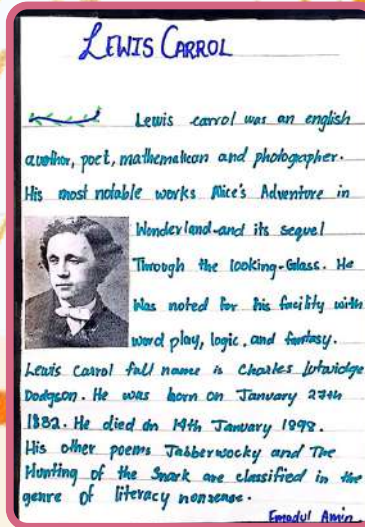 LEWIS CARROL
Lewis carrol was an english
author, poet, mathematican and photographer.
His most notable works Alice's Adventure in
Wonderland and its sequel
Through the looking-Glass. He
Was noted for his facility with
word play, logic, and fantasy.
Lewis Carrol full name is Charles lutwidge
Dodgson. He was born on January 27th
1832. He died on 14th January 1898.
His other poems Jabberwocky and The
Hunting of the Snark are classified in the
genre of literacy nonsense.
Emadul Amin.